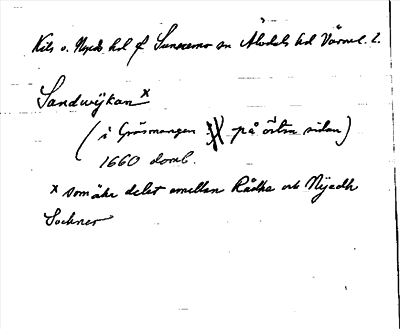 Kils o. Nyeds hd f Sunnemo sn Älvdals hd Värml. l.
Sandwÿkan x
(i Gräsmangen på östra sidan)
1660 domb.
x som ähr delet emellan Rådha och Nÿedh
Sochner